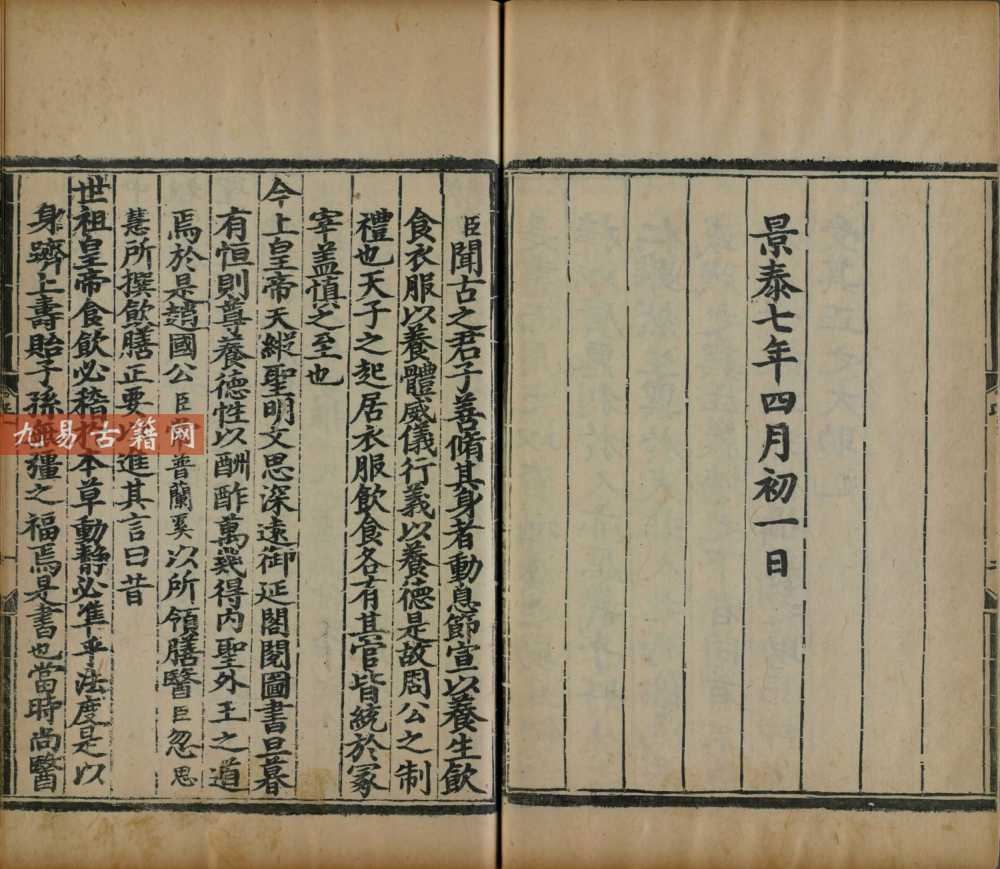 景泰七年四月初一日
臣聞古之君子善脩其身者動息節宣以養生飲
食衣服以養體威儀行義以養德是故周公之制
禮也天子之起居衣服飲食各有其官皆統於冢
宰盖慎之至也
今上皇帝天縱聖明文思深遠御延閣閱圖書旦暮
有恒則尊養德性以酬酢萬幾得内聖外王之道
焉於是趙國公臣常普蘭奚以所領膳醫臣忽思
慧所撰飲膳正要以進其言曰昔
世祖皇帝食飲必稽於本草動静必準乎法度是以
身躋上壽貽子孫無疆之福焉是書也當時尚醫
九易古籍网